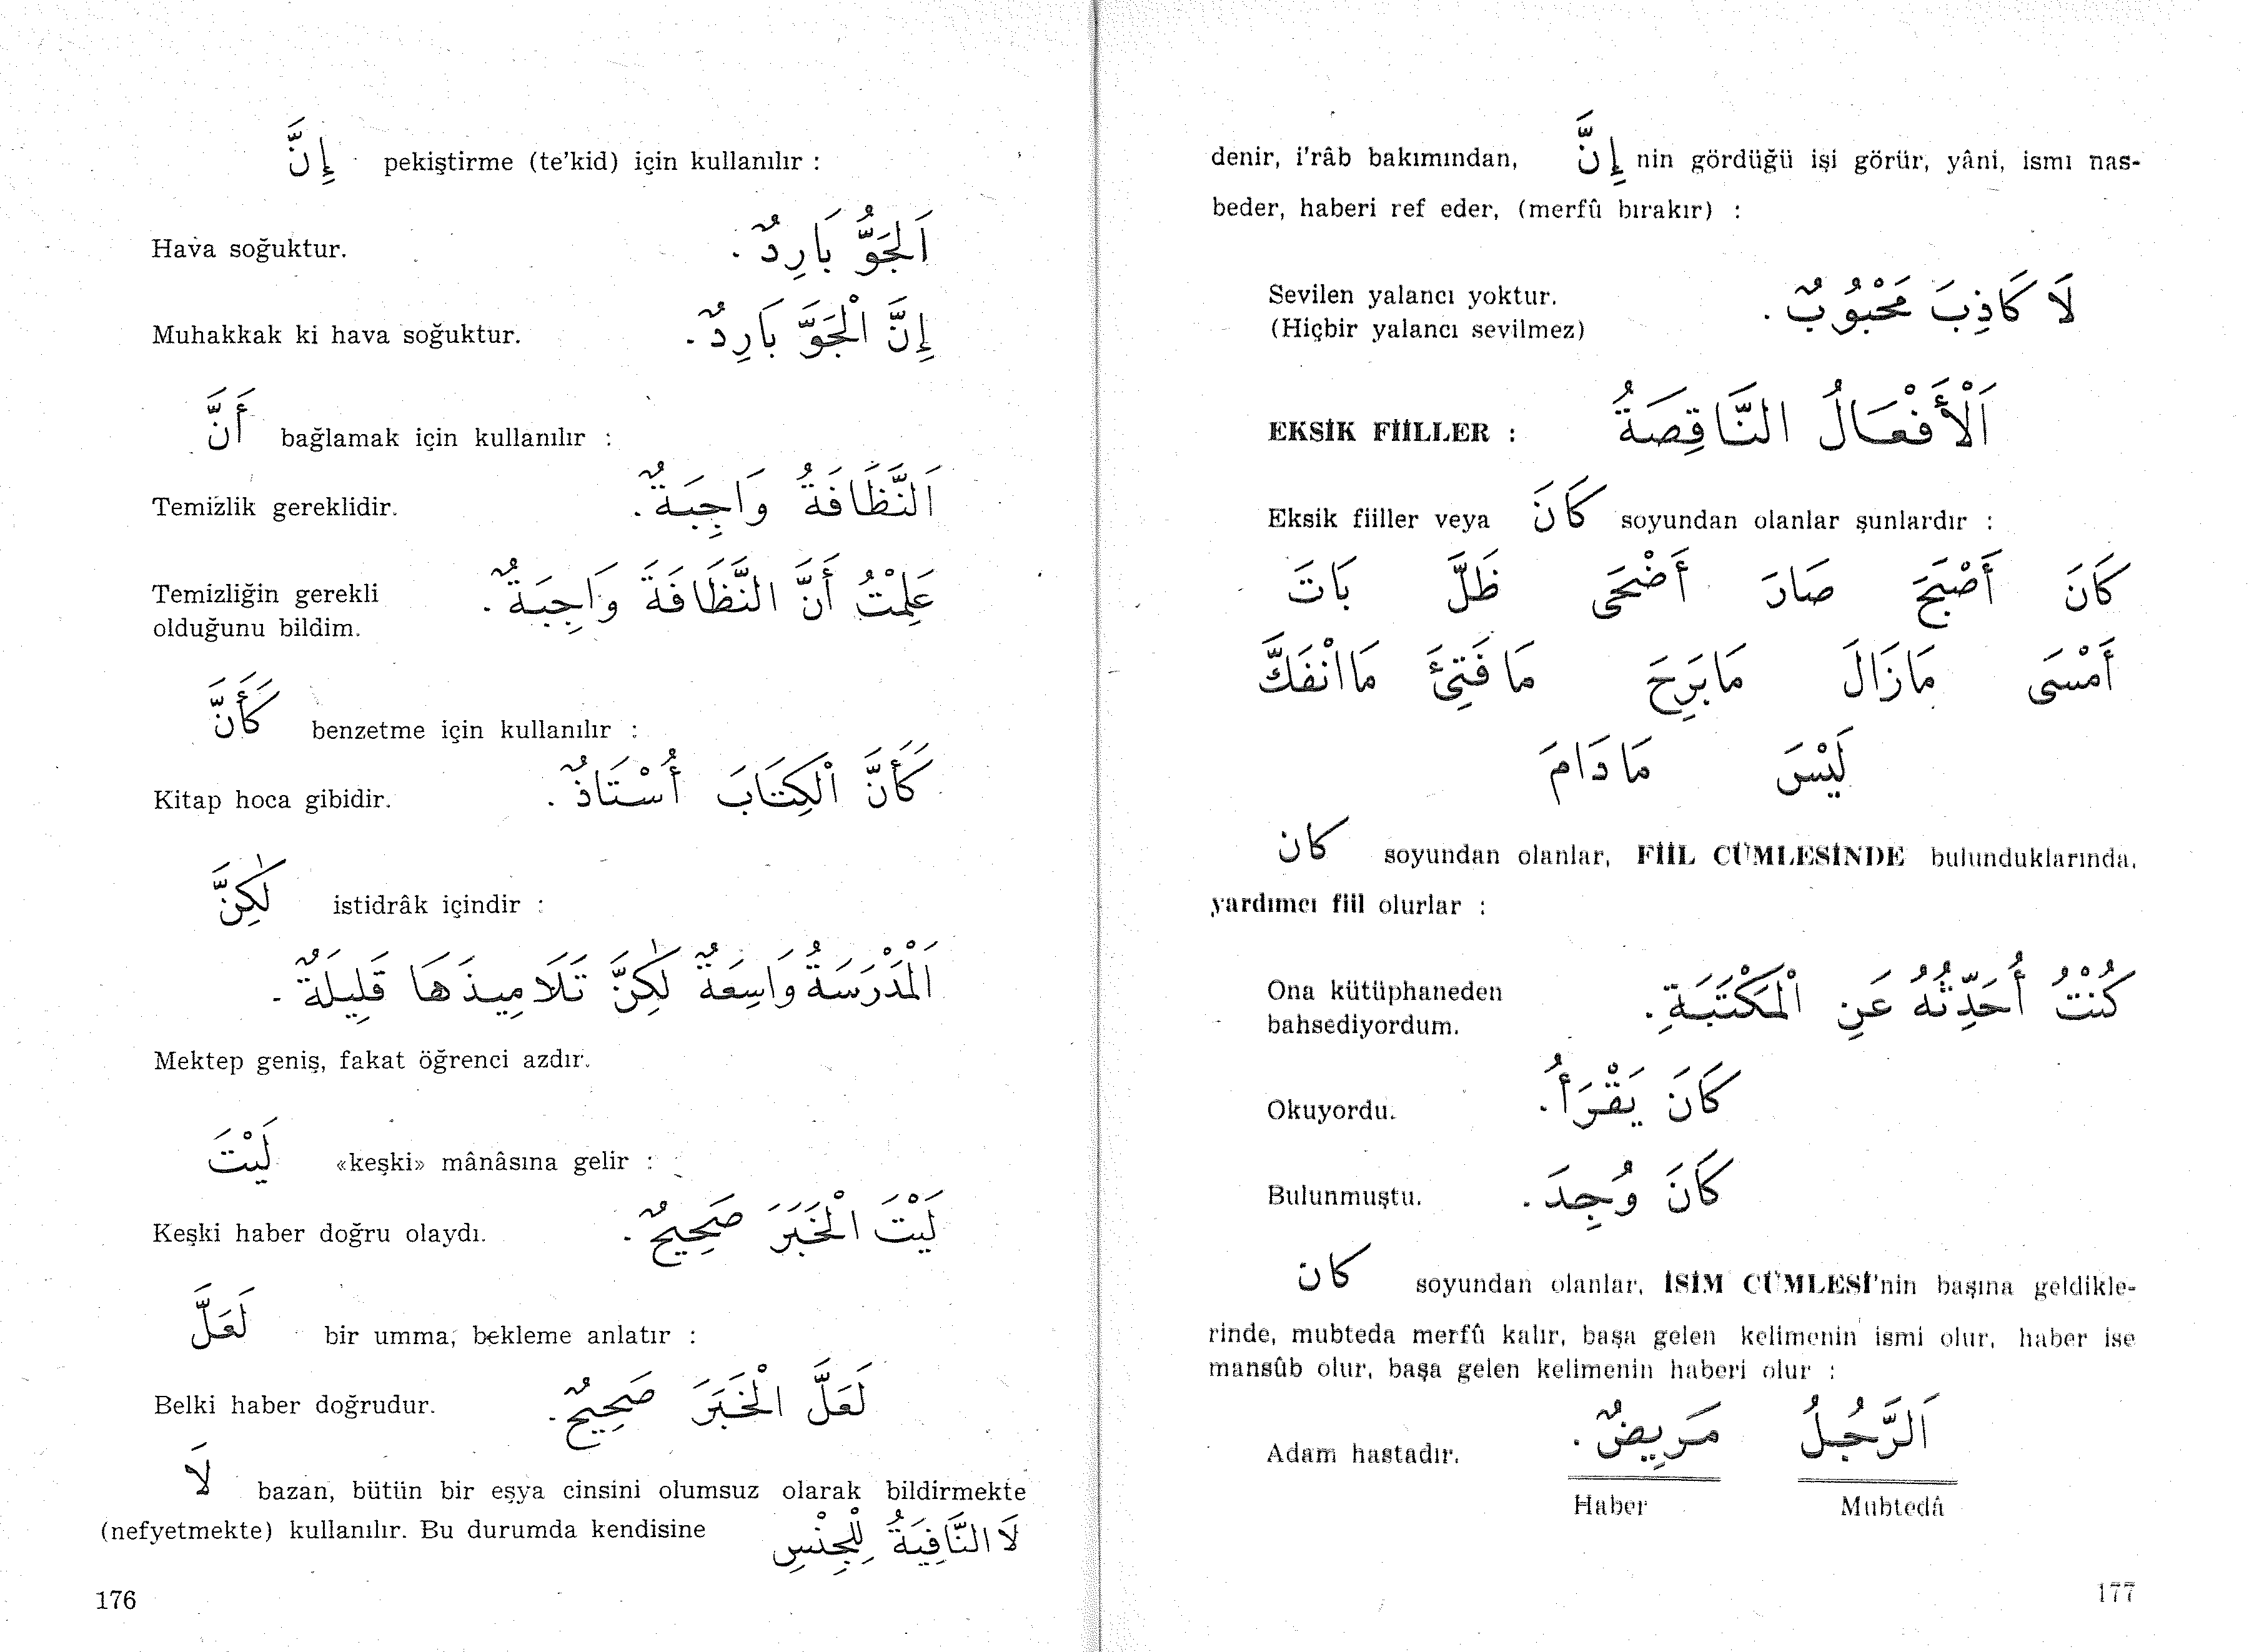 إِنَّ pekiştirme (te'kid) için kullanılır :
Hava soğuktur. اَلْجَوُّ بَارِدٌ .
Muhakkak ki hava soğuktur. إِنَّ الْجَوَّ بَارِدٌ .
أَنَّ bağlamak için kullanılır :
Temizlik gereklidir. اَلنَّظَافَةُ وَاجِبَةٌ .
Temizliğin gerekli عَلِمْتُ أَنَّ النَّظَافَةَ وَاجِبَةٌ .
olduğunu bildim.
كَأَنَّ benzetme için kullanılır :
Kitap hoca gibidir. كَأَنَّ الْكِتَابَ أُسْتَاذٌ .
لٰكِنَّ istidrâk içindir :
اَلْمَدْرَسَةُ وَاسِعَةٌ لٰكِنَّ تَلَامِيذَهَا قَلِيلَةٌ .
Mektep geniş, fakat öğrenci azdır.
لَيْتَ «keşki» mânâsına gelir :
Keşki haber doğru olaydı. لَيْتَ الْخَبَرَ صَحِيحٌ .
لَعَلَّ bir umma, bekleme anlatır :
Belki haber doğrudur. لَعَلَّ الْخَبَرَ صَحِيحٌ .
لَا bazan, bütün bir eşya cinsini olumsuz olarak bildirmekte
(nefyetmekte) kullanılır. Bu durumda kendisine لَا النَّافِيَةُ لِلْجِنْسِ
176
denir, i'râb bakımından, إِنَّ nin gördüğü işi görür, yâni, ismı nas-
beder, haberi ref eder, (merfû bırakır) :
Sevilen yalancı yoktur. لَا كَاذِبَ مَحْبُوبٌ .
(Hiçbir yalancı sevilmez)
EKSİK FİİLLER : اَلْأَفْعَالُ النَّاقِصَةُ
Eksik fiiller veya كَانَ soyundan olanlar şunlardır :
كَانَ أَصْبَحَ صَارَ أَضْحَى ظَلَّ بَاتَ
أَمْسَى مَازَالَ مَابَرِحَ مَا فَتِئَ مَاانْفَكَّ
لَيْسَ مَا دَامَ
كان soyundan olanlar, FİİL CÜMLESİNDE bulunduklarında,
yardımcı fiil olurlar :
Ona kütüphaneden كُنْتُ أُحَدِّثُهُ عَنِ الْمَكْتَبَةِ .
bahsediyordum.
Okuyordu. كَانَ يَقْرَأُ .
Bulunmuştu. كَانَ وُجِدَ .
كان soyundan olanlar, İSİM CÜMLESİ'nin başına geldikle-
rinde, mubteda merfû kalır, başa gelen kelimenin ismi olur, haber ise
mansûb olur, başa gelen kelimenin haberi olur :
Adam hastadır. اَلرَّجُلُ مَرِيضٌ .
Haber Mubtedâ
177